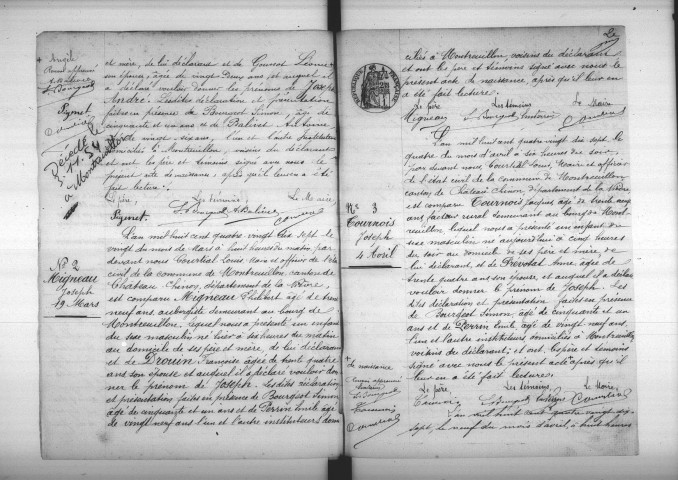 et mère, de lui déclarant et de Gouvest Léonie
son épouse, âgée de vingt deux ans et auquel il a
déclaré vouloir donner les prénoms de Joseph
André. Lesdites déclaration et présentation
faites en présence de Bourgeot Simon, âgé de
cinquante et un ans et de
de vingt six ans, l'un et l'autre instituteurs
domiciliés à Montreuillon, voisins du déclarant
et ont les père et témoins signé avec nous le
présent acte de naissance, après qu'il leur en a été
fait lecture.
Le père, Les témoins, Le Maire,
N° 2
Migneau
Joseph
19 Mars
L'an mil huit cent quatre vingt dix sept, le
vingt du mois de Mars à huit heures du matin par
devant nous Courtial Louis, Maire et officier de l'état
civil de la commune de Montreuillon, canton de
Château Chinon, département de la Nièvre,
est comparu Migneau Philibert âgé de trente
neuf ans, aubergiste demeurant au bourg de
Montreuillon, lequel nous a présenté un enfant
du sexe masculin né hier à six heures du matin
au domicile de ses père et mère, de lui déclarant
et de Drouin Françoise âgée de trente quatre
ans son épouse et auquel il a déclaré vouloir don
ner le prénom de Joseph. Lesdites déclaration
et présentation faites en présence de Bourgeot Simon,
âgé de cinquante et un ans et de Perrin Emile âgé
de vingt neuf ans l'un et l'autre instituteurs domi
ciliés à Montreuillon, voisins du déclarant
et ont les père et témoins signé avec nous le
présent acte de naissance, après qu'il leur en
a été fait lecture.
Le père Les témoins Le Maire
Migneau
N° 3
Tournois
Joseph
4 Avril
L'an mil huit cent quatre vingt dix sept, le
quatre du mois d'avril à six heures du soir,
par devant nous, Courtial Louis, Maire et officier
de l'état civil de la commune de Montreuillon,
canton de Château Chinon, département de la Nièvre
est comparu Tournois Jacques âgé de trente neuf
ans, facteur rural demeurant au bourg de Mont-
reuillon, lequel nous a présenté un enfant du
sexe masculin né aujourd'hui à cinq heures
du soir au domicile de ses père et mère de
lui déclarant, et de Prévotat Anne âgée de
trente quatre ans son épouse, et auquel il a déclaré
vouloir donner le prénom de Joseph. Les
dites déclaration et présentation faites en présence
de Bourgeot Simon, âgé de cinquante et un
ans et de Perrin Emile, âgé de vingt neuf ans,
l'un et l'autre instituteurs domiciliés à Montreuillon
voisins du déclarant, et ont, les père et témoins
signé avec nous le présent acte après qu'il
leur en a été fait lecture.
Le père Les témoins Le Maire
+ de naissance
L'an mil huit cent quatre vingt dix
sept, le neuf du mois d'avril, à huit heures